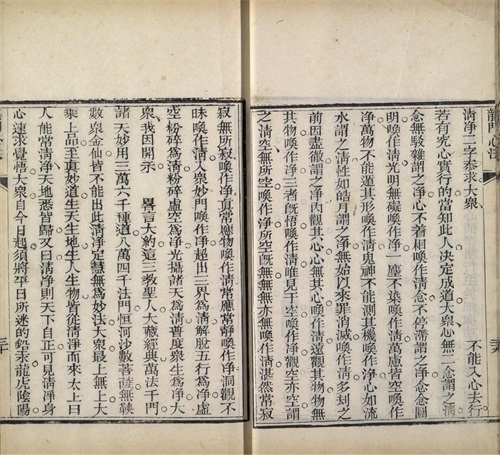 清淨二字奉求大衆 不能入心去行
若有究心實行的當知此人決定成道大衆心無二念謂之清
念無駁雜謂之淨心不着相喚作清念不停滯謂之淨念念圓
明喚作清光明無礙喚作淨一塵不染喚作清萬慮皆空喚作
淨萬物不能遁其形喚作清鬼神不能測其機喚作淨心如流
水謂之清性如皓月謂之淨無始以來罪消滅喚作清多刼之
前因盡徹謂之淨內觀其心心無其心喚作清遠觀其物物無
其物喚作淨三者旣悟喚作清唯見于空喚作淨觀空亦空謂
之清空無所空喚作淨所空旣無無無亦無喚作清湛然常寂
寂無所寂喚作淨眞常應物喚作清常應常靜喚作淨洞觀不
昧喚作清入衆妙門喚作淨超出三界爲清解脫五行爲淨虛
空粉碎爲清粉碎虛空爲淨光攝諸天爲清普度衆生爲淨大
衆我因開示 譬言大約這三教聖人大藏經典萬法千門
諸天妙用三萬六千種道八萬四千法門恒河沙數菩薩無鞅
數衆金仙皆不能出此清淨定慧無爲妙法大衆最上無上大
乘上品至眞妙道生天生地生人生物皆從清淨而來太上曰
人能常清淨天地悉皆歸又曰清淨則天下自正可見清淨身
心速求覺悟大衆自今日起須將平日所迷的鉛汞龍虎陰陽